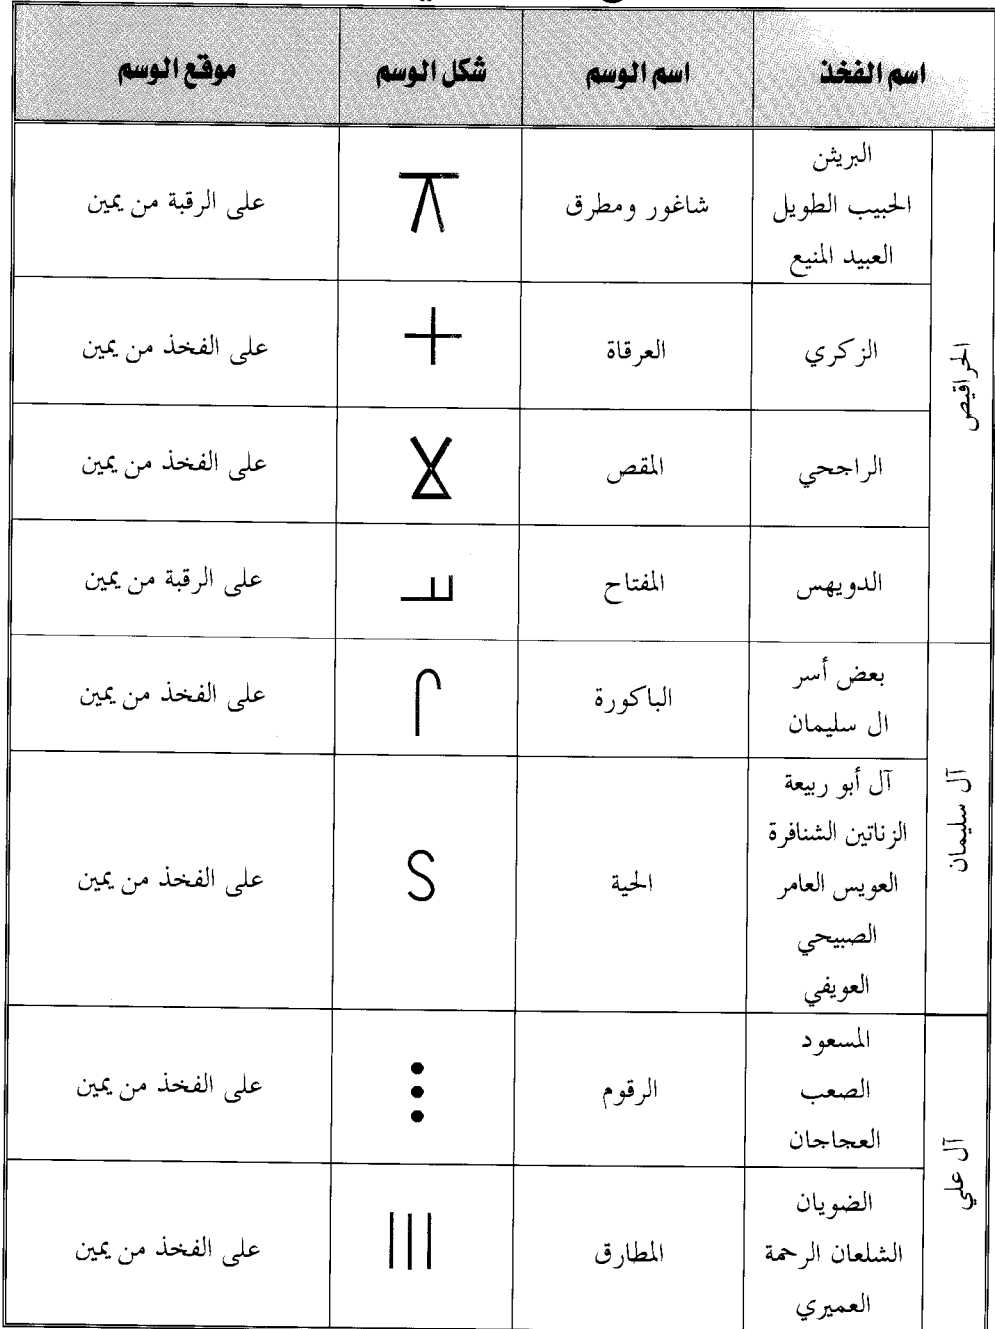 اسم الفخذ اسم الوسم شكل الوسم موقع الوسم
الحراقيص
البريثن
الحبيب الطويل
العبيد المنيع
شاغور ومطرق
على الرقبة من يمين
الزكري
العرقاة
على الفخذ من يمين
الراجحي
المقص
على الفخذ من يمين
الدويهس
المفتاح
على الرقبة من يمين
آل سليمان
بعض أسر
ال سليمان
الباكورة
على الفخذ من يمين
آل أبو ربيعة
الزناتين الشنافرة
العويس العامر
الصبيحي
العويفي
الحية
على الفخذ من يمين
آل علي
المسعود
الصعب
العجاجان
الرقوم
على الفخذ من يمين
الضويان
الشلعان الرحمة
العميري
المطارق
على الفخذ من يمين